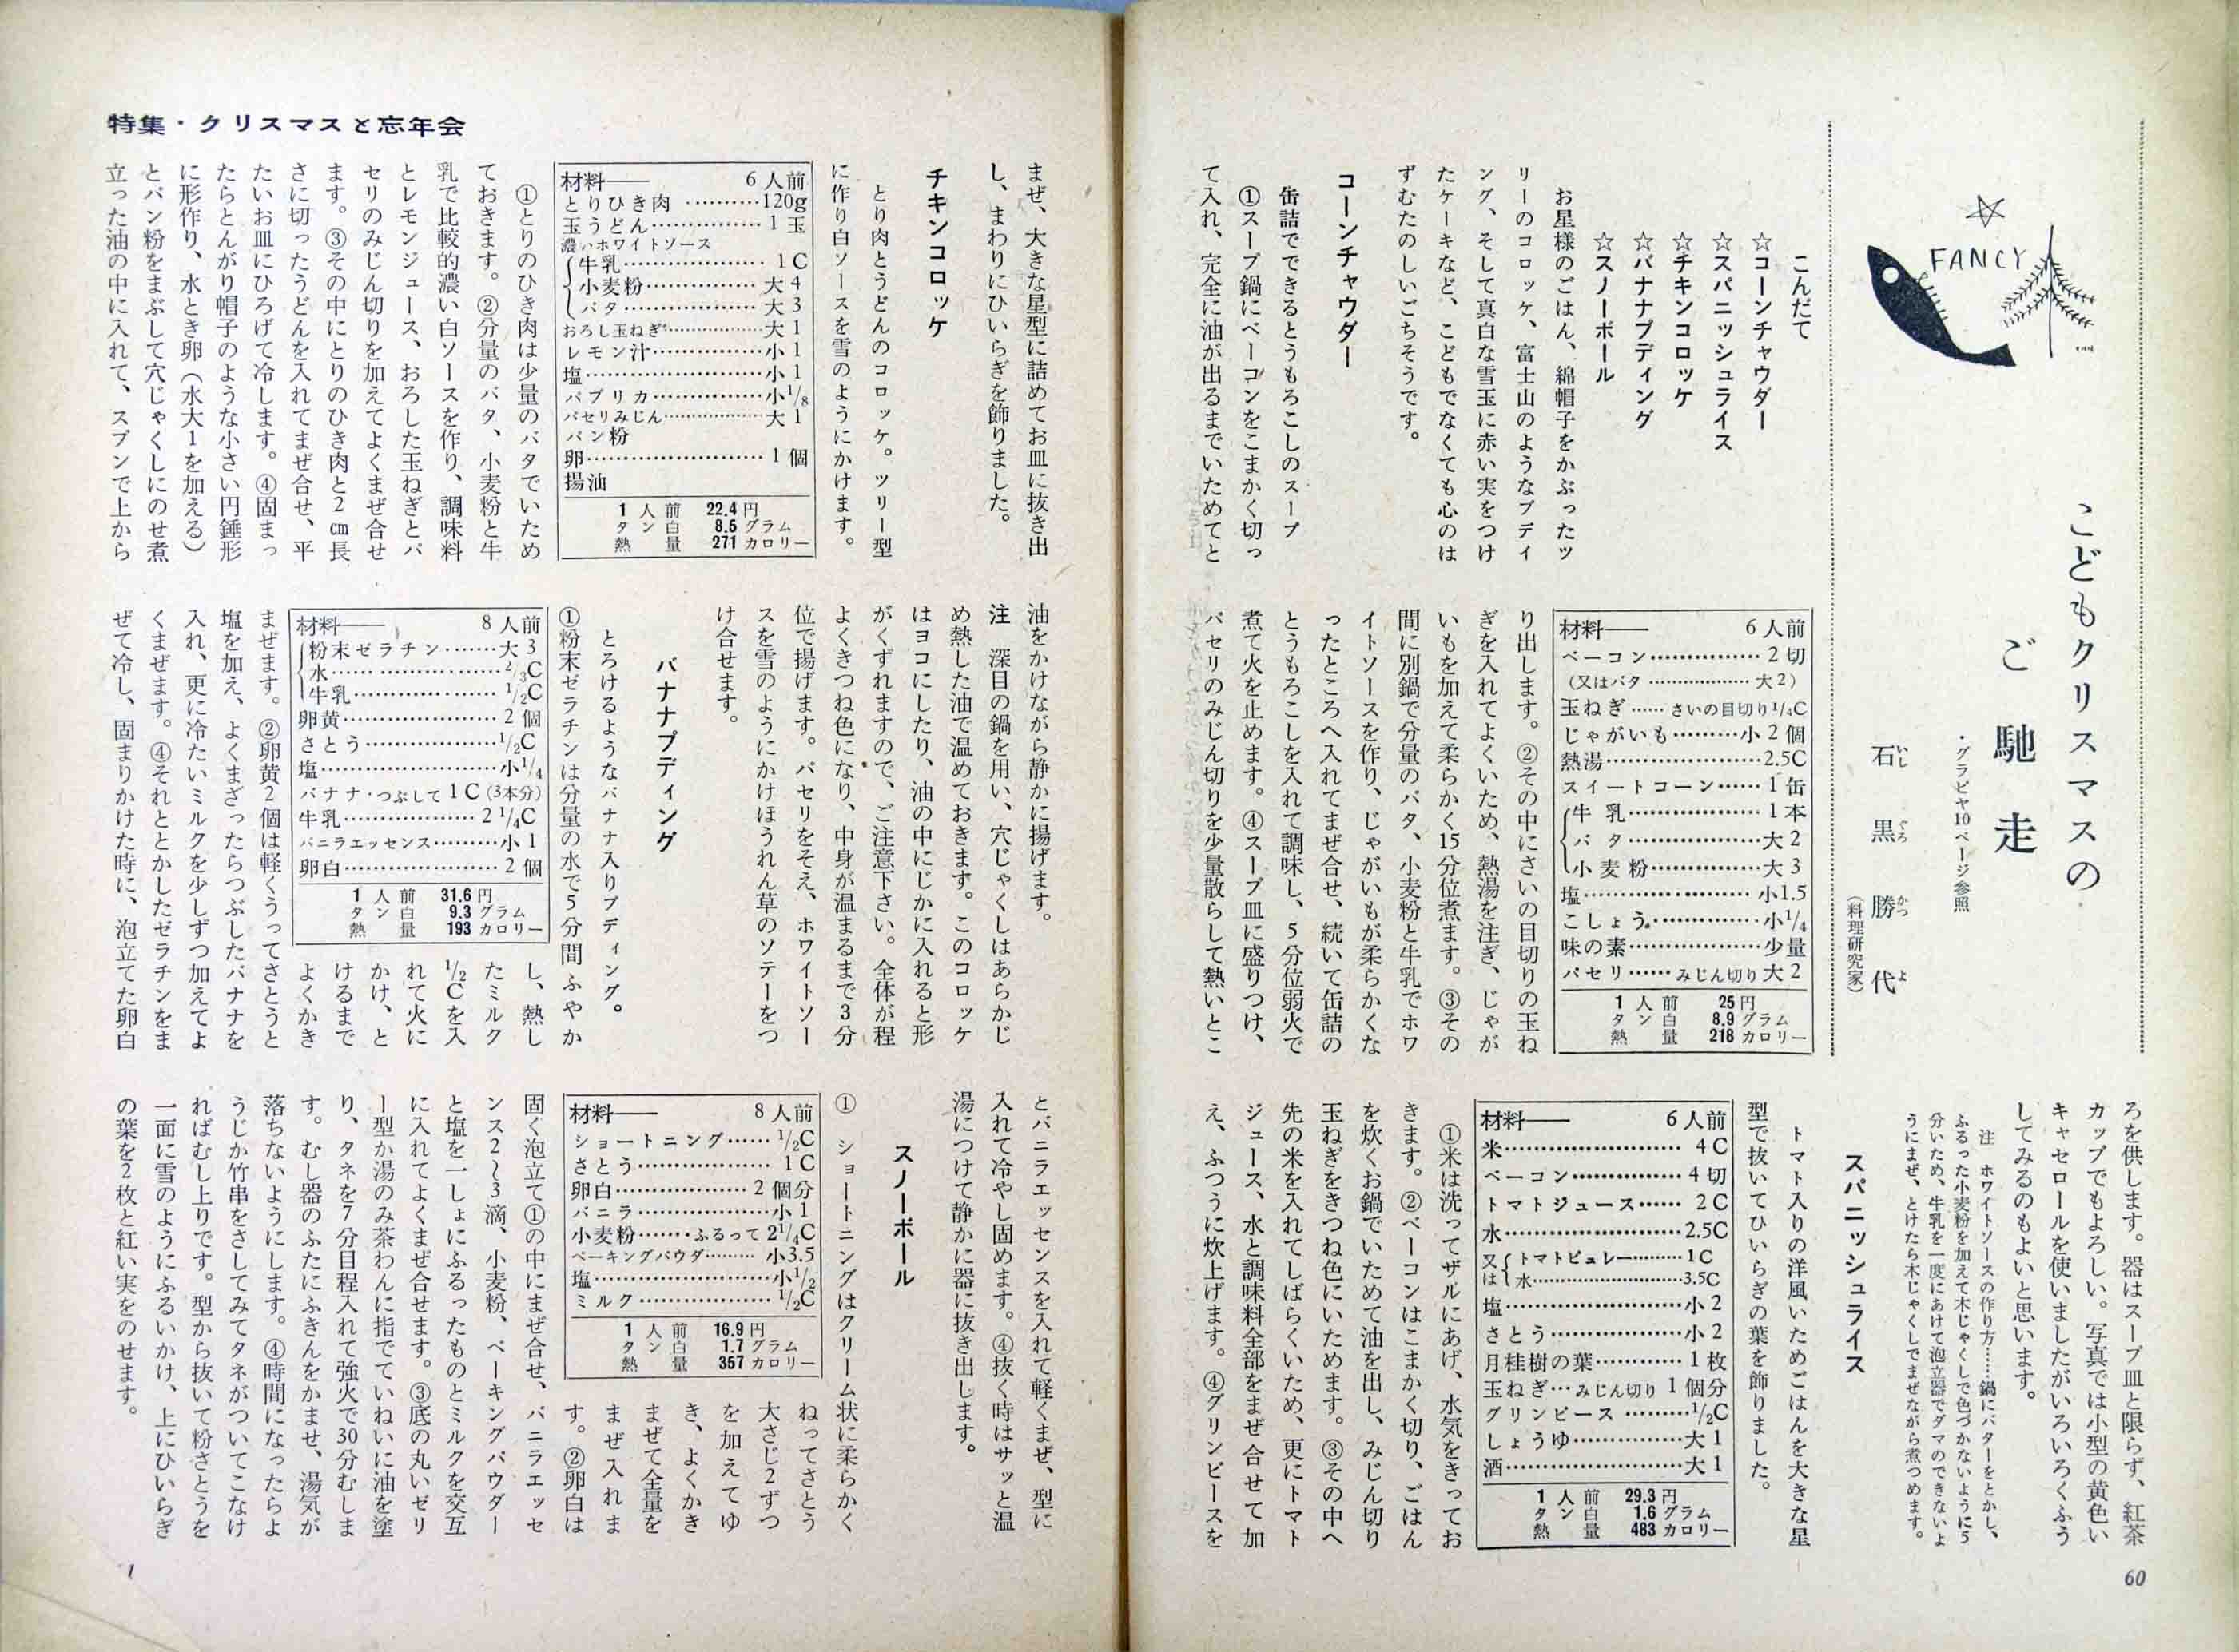 FANCY
こどもクリスマスの
ご馳走
・グラビヤ10ページ参照
石黒勝代
いし ぐろ かつ よ
(料理研究家)
こんだて
☆コーンチャウダー
☆スパニッシュライス
☆チキンコロッケ
☆バナナプディング
☆スノーボール
お星様のごはん、綿帽子をかぶったツ
リーのコロッケ、富士山のようなプディ
ング、そして真白な雪玉に赤い実をつけ
たケーキなど、こどもでなくても心のは
ずむたのしいごちそうです。
コーンチャウダー
缶詰でできるとうもろこしのスープ
①スープ鍋にベーコンをこまかく切っ
て入れ、完全に油が出るまでいためてと
材料── 6人前
ベーコン……………2切
(又はバタ……………大2)
玉ねぎ……さいの目切り1/4C
じゃがいも………小2個
熱湯…………………2.5C
スイートコーン……1缶
牛乳………………1本
バタ………………大2
小麦粉……………大3
塩…………………小1.5
こしょう……………小1/4
味の素………………少量
パセリ……みじん切り大2
1人前 25円
タン白 8.9グラム
熱量 218カロリー
り出します。②その中にさいの目切りの玉ね
ぎを入れてよくいため、熱湯を注ぎ、じゃが
いもを加えて柔らかく15分位煮ます。③その
間に別鍋で分量のバタ、小麦粉と牛乳でホワ
イトソースを作り、じゃがいもが柔らかくな
ったところへ入れてまぜ合せ、続いて缶詰の
とうもろこしを入れて調味し、5分位弱火で
煮て火を止めます。④スープ皿に盛りつけ、
パセリのみじん切りを少量散らして熱いとこ
ろを供します。器はスープ皿と限らず、紅茶
カップでもよろしい。写真では小型の黄色い
キャセロールを使いましたがいろいろくふう
してみるのもよいと思います。
注 ホワイトソースの作り方……鍋にバターをとかし、
ふるった小麦粉を加えて木じゃくしで色づかないように5
分いため、牛乳を一度にあけて泡立器でダマのできないよ
うにまぜ、とけたら木じゃくしでまぜながら煮つめます。
スパニッシュライス
トマト入りの洋風いためごはんを大きな星
型で抜いてひいらぎの葉を飾りました。
材料── 6人前
米……………………4C
ベーコン……………4切
トマトジュース……2C
水……………………2.5C
又は
トマトピュレー………1C
水……………………3.5C
塩……………………小2
さとう………………小2
月桂樹の葉…………1枚
玉ねぎ…みじん切り1個分
グリンピース………1/2C
しょうゆ……………大1
酒……………………大1
1人前 29.3円
タン白 1.6グラム
熱量 483カロリー
①米は洗ってザルにあげ、水気をきってお
きます。②ベーコンはこまかく切り、ごはん
を炊くお鍋でいためて油を出し、みじん切り
玉ねぎをきつね色にいためます。③その中へ
先の米を入れてしばらくいため、更にトマト
ジュース、水と調味料全部をまぜ合せて加
え、ふつうに炊上げます。④グリンピースを
60
特集・クリスマスと忘年会
まぜ、大きな星型に詰めてお皿に抜き出
し、まわりにひいらぎを飾りました。
チキンコロッケ
とり肉とうどんのコロッケ。ツリー型
に作り白ソースを雪のようにかけます。
材料── 6人前
とりひき肉………120g
玉うどん……………1玉
濃いホワイトソース
牛乳………………1C
小麦粉……………大4
バタ………………大3
おろし玉ねぎ………大1
レモン汁……………小1
塩……………………小1
パプリカ……………小1/8
パセリみじん………大1
パン粉
卵……………………1個
揚油
1人前 22.4円
タン白 8.5グラム
熱量 271カロリー
①とりのひき肉は少量のバタでいため
ておきます。②分量のバタ、小麦粉と牛
乳で比較的濃い白ソースを作り、調味料
とレモンジュース、おろした玉ねぎとパ
セリのみじん切りを加えてよくまぜ合せ
ます。③その中にとりのひき肉と2cm長
さに切ったうどんを入れてまぜ合せ、平
たいお皿にひろげて冷します。④固まっ
たらとんがり帽子のような小さい円錘形
に形作り、水とき卵(水大1を加える)
とパン粉をまぶして穴じゃくしにのせ煮
立った油の中に入れて、スプンで上から
油をかけながら静かに揚げます。
注 深目の鍋を用い、穴じゃくしはあらかじ
め熱した油で温めておきます。このコロッケ
はヨコにしたり、油の中にじかに入れると形
がくずれますので、ご注意下さい。全体が程
よくきつね色になり、中身が温まるまで3分
位で揚げます。パセリをそえ、ホワイトソー
スを雪のようにかけほうれん草のソテーをつ
け合せます。
バナナプディング
とろけるようなバナナ入りプディング。
①粉末ゼラチンは分量の水で5分間ふやか
材料── 8人前
粉末ゼラチン……大3
水…………………2/3C
牛乳………………1/2C
卵黄…………………2個
さとう………………1/2C
塩……………………小1/4
バナナ・つぶして1C(3本分)
牛乳…………………2 1/4C
バニラエッセンス……小1
卵白…………………2個
1人前 31.6円
タン白 9.3グラム
熱量 193カロリー
し、熱し
たミルク
1/2Cを入
れて火に
かけ、と
けるまで
よくかき
まぜます。②卵黄2個は軽くうってさとうと
塩を加え、よくまざったらつぶしたバナナを
入れ、更に冷たいミルクを少しずつ加えてよ
くまぜます。④それととかしたゼラチンをま
ぜて冷し、固まりかけた時に、泡立てた卵白
とバニラエッセンスを入れて軽くまぜ、型に
入れて冷やし固めます。④抜く時はサッと温
湯につけて静かに器に抜き出します。
スノーボール
① ショートニングはクリーム状に柔らかく
材料── 8人前
ショートニング……1/2C
さとう………………1C
卵白…………………2個分
バニラ………………小1
小麦粉……ふるって2 1/4C
ベーキングパウダ……小3.5
塩……………………小1/2
ミルク………………1/2C
1人前 16.9円
タン白 1.7グラム
熱量 357カロリー
ねってさとう
大さじ2ずつ
を加えてゆ
き、よくかき
まぜて全量を
まぜ入れま
す。②卵白は
固く泡立て①の中にまぜ合せ、バニラエッセ
ンス2〜3滴、小麦粉、ベーキングパウダー
と塩を一しょにふるったものとミルクを交互
に入れてよくまぜ合せます。③底の丸いゼリ
ー型か湯のみ茶わんに指でていねいに油を塗
り、タネを7分目程入れて強火で30分むしま
す。むし器のふたにふきんをかませ、湯気が
落ちないようにします。④時間になったらよ
うじか竹串をさしてみてタネがついてこなけ
ればむし上りです。型から抜いて粉さとうを
一面に雪のようにふるいかけ、上にひいらぎ
の葉を2枚と紅い実をのせます。
1